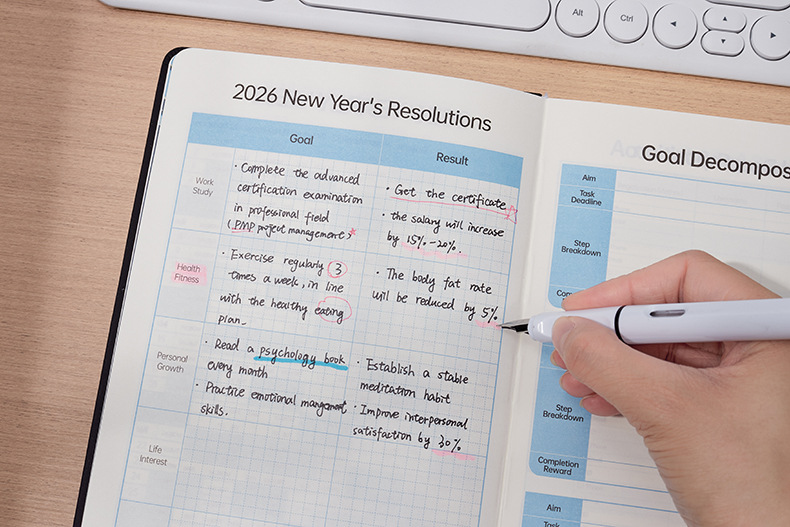 Alt
Ctrl
2026 New Year's Resolutions
Goal
Result
Work
Study
· Complete the advanced
certification examination
in professional field
(PMP project management)
· Get the certificate
· the salary will increase
by 15%-20%.
Health
Fitness
· Exercise regularly 3
times a week, in line
with the healthy eating
plan.
· The body fat rate
will be reduced by 5%.
Personal
Growth
· Read a psychology book
every month
· Practice emotional mangement
skills.
· Establish a stable
meditation habit
· Improve interpersonal
satisfaction by 30%
Life
Interest
Goal Decompos
Aim
Task
Deadline
Step
Breakdown
Step
Breakdown
Completion
Reward
Aim
Task